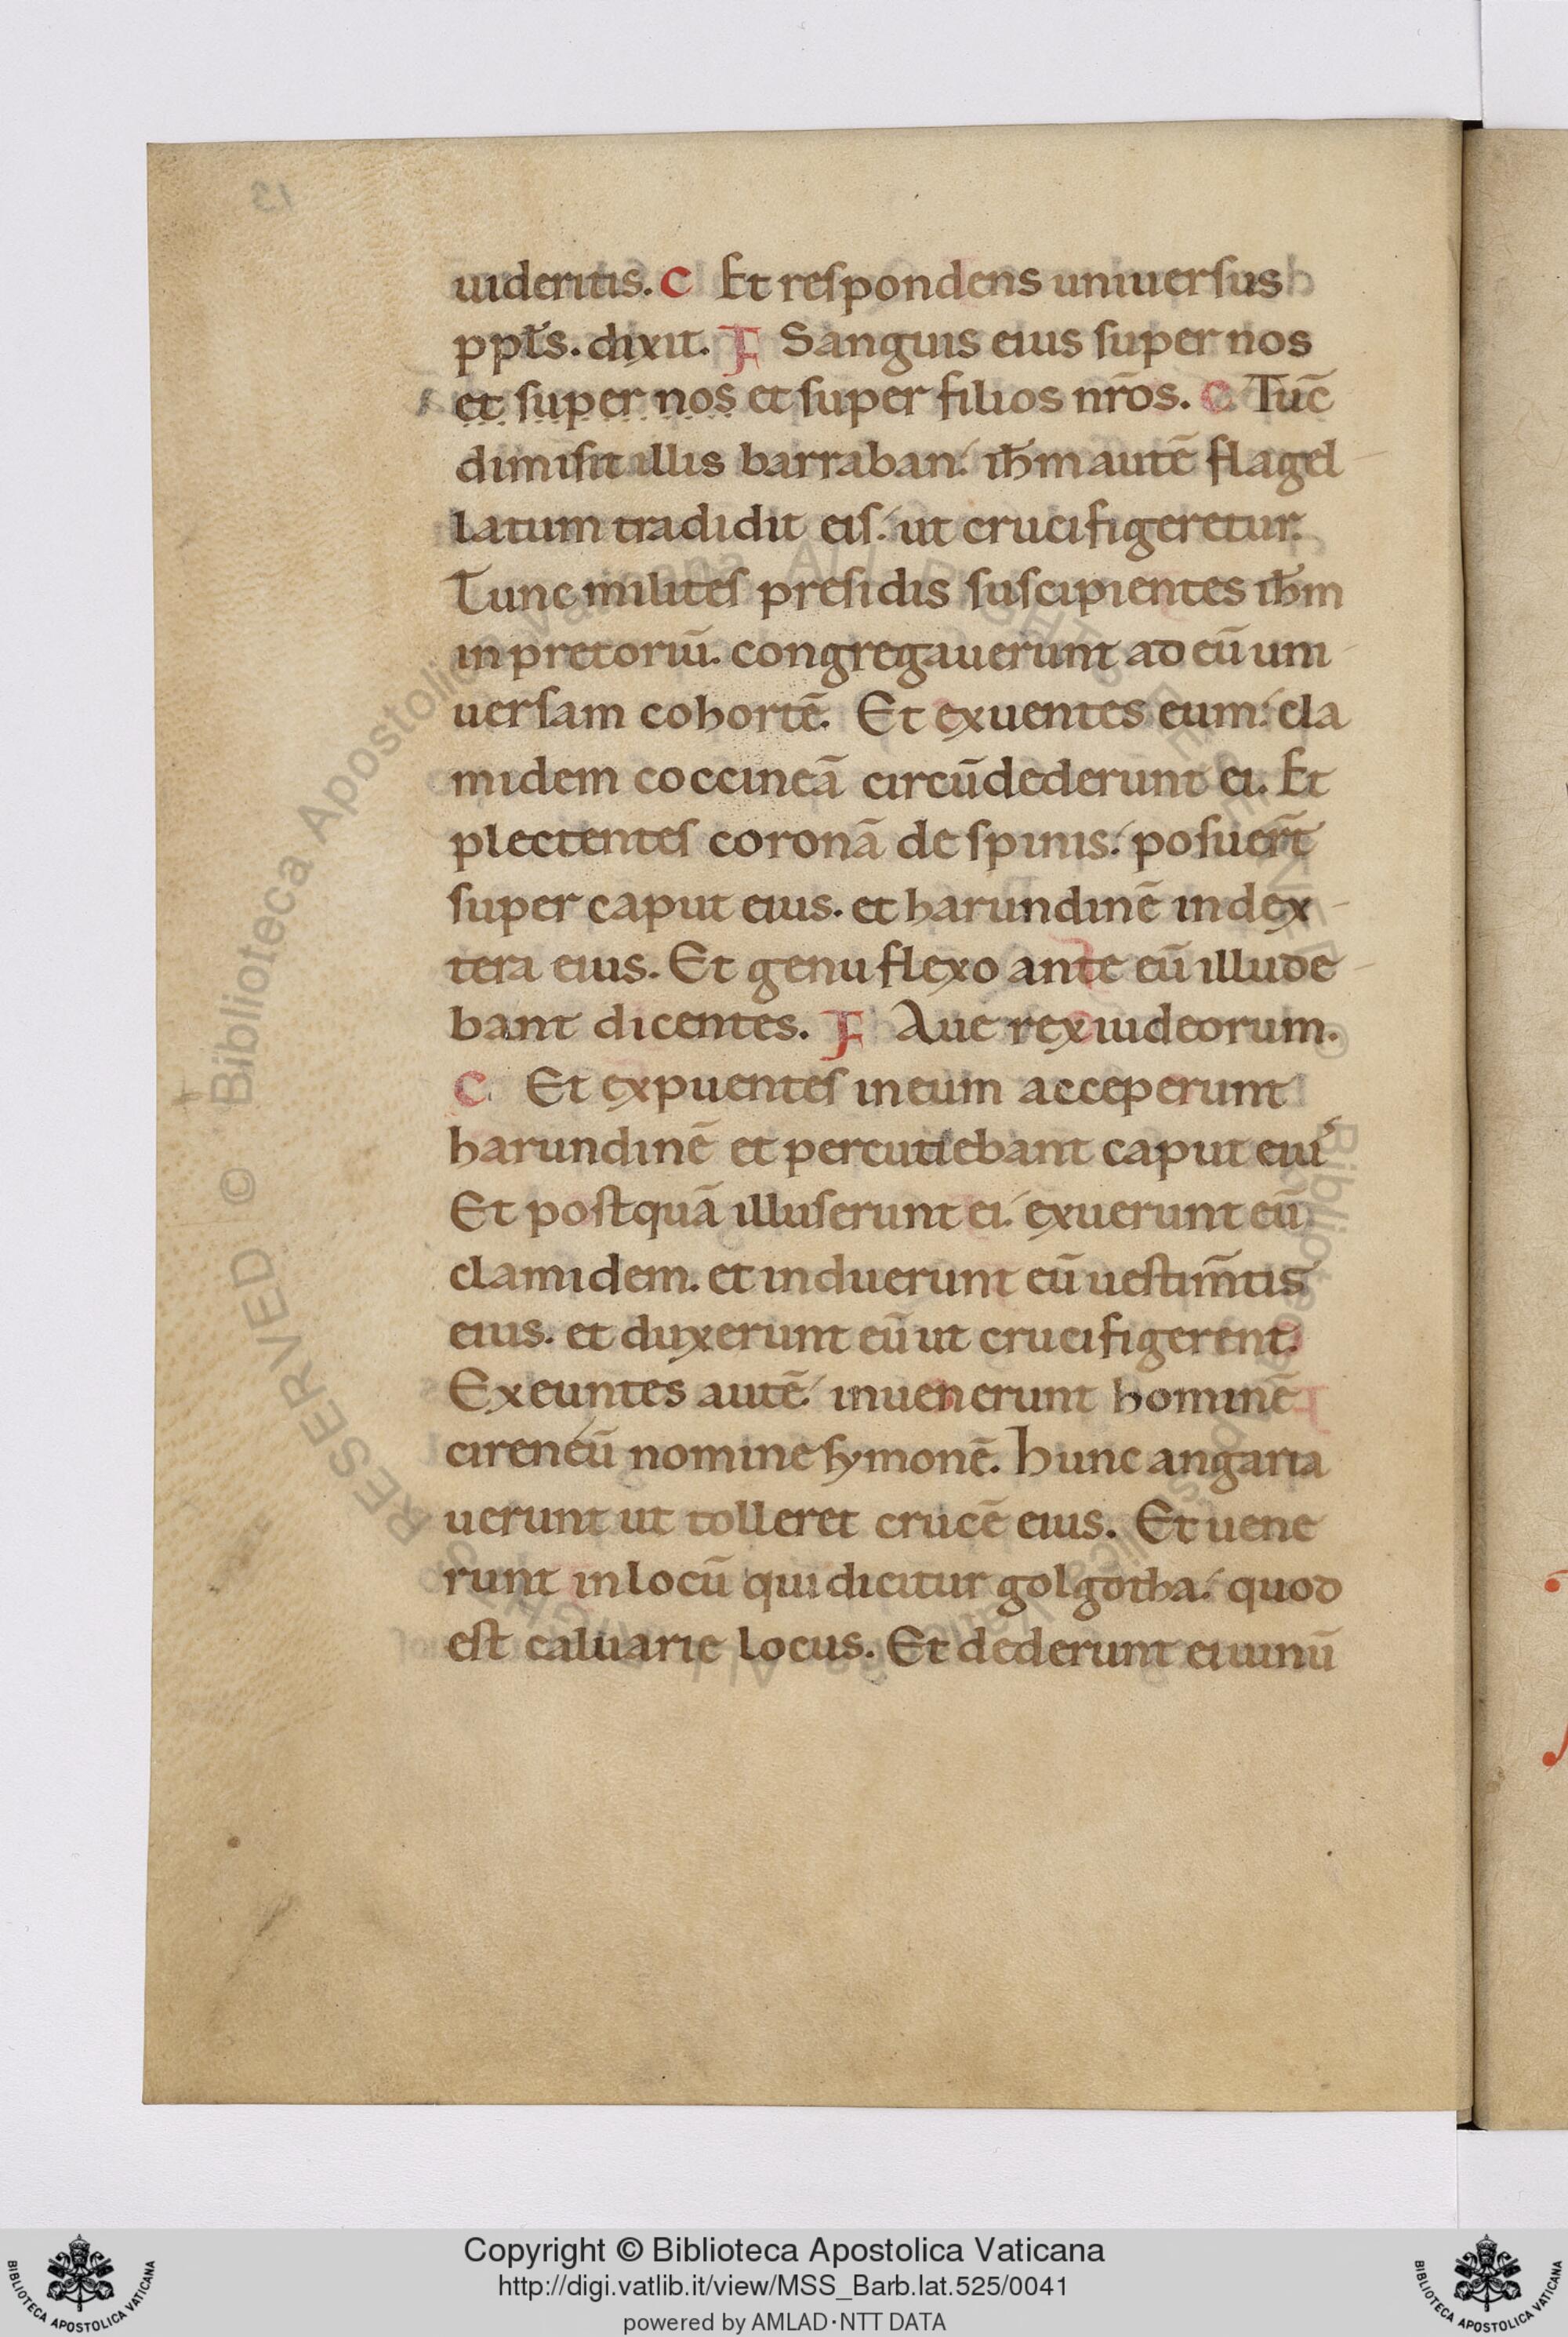 uideritis. C Et respondens uniuersus
ppłs. dixit. F Sanguis eius super nos
et super nos et super filios nr̄os. C. Tūc
dimisit illis barraban. ih̄m autē flagel
latum tradidit eis. ut crucifigeretur.
Tunc milites presidis suscipientes ih̄m
in pretoriū. congregauerunt ad eū uni
uersam cohortē. Et exuentes eum. cla
midem coccineā circūdederunt ei. Et
plectentes coronā de spinis. posuer̄t
super caput eius. et harundinē in dex
tera eius. Et genu flexo ante eū illude
bant dicentes. F Aue rex iudeorum.
C. Et expuentes in eum acceperunt
harundinē et percutiebant caput eius
Et postquā illuserunt ei. exuerunt eū
clamidem. et induerunt eū uestim̄tis
eius. et duxerunt eū ut crucifigerent.
Exeuntes autē. inuenerunt hominē
cireneū nomine symonē. Hunc angaria
uerunt ut tolleret crucē eius. Et uene
runt in locū qui dicitur golgotha. quod
est caluarie locus. Et dederunt ei uinū
Biblioteca Apostolica Vaticana ALL RIGHTS RESERVED ©
Copyright © Biblioteca Apostolica Vaticana
http://digi.vatlib.it/view/MSS_Barb.lat.525/0041
powered by AMLAD·NTT DATA
BIBLIOTECA APOSTOLICA VATICANA
BIBLIOTECA APOSTOLICA VATICANA